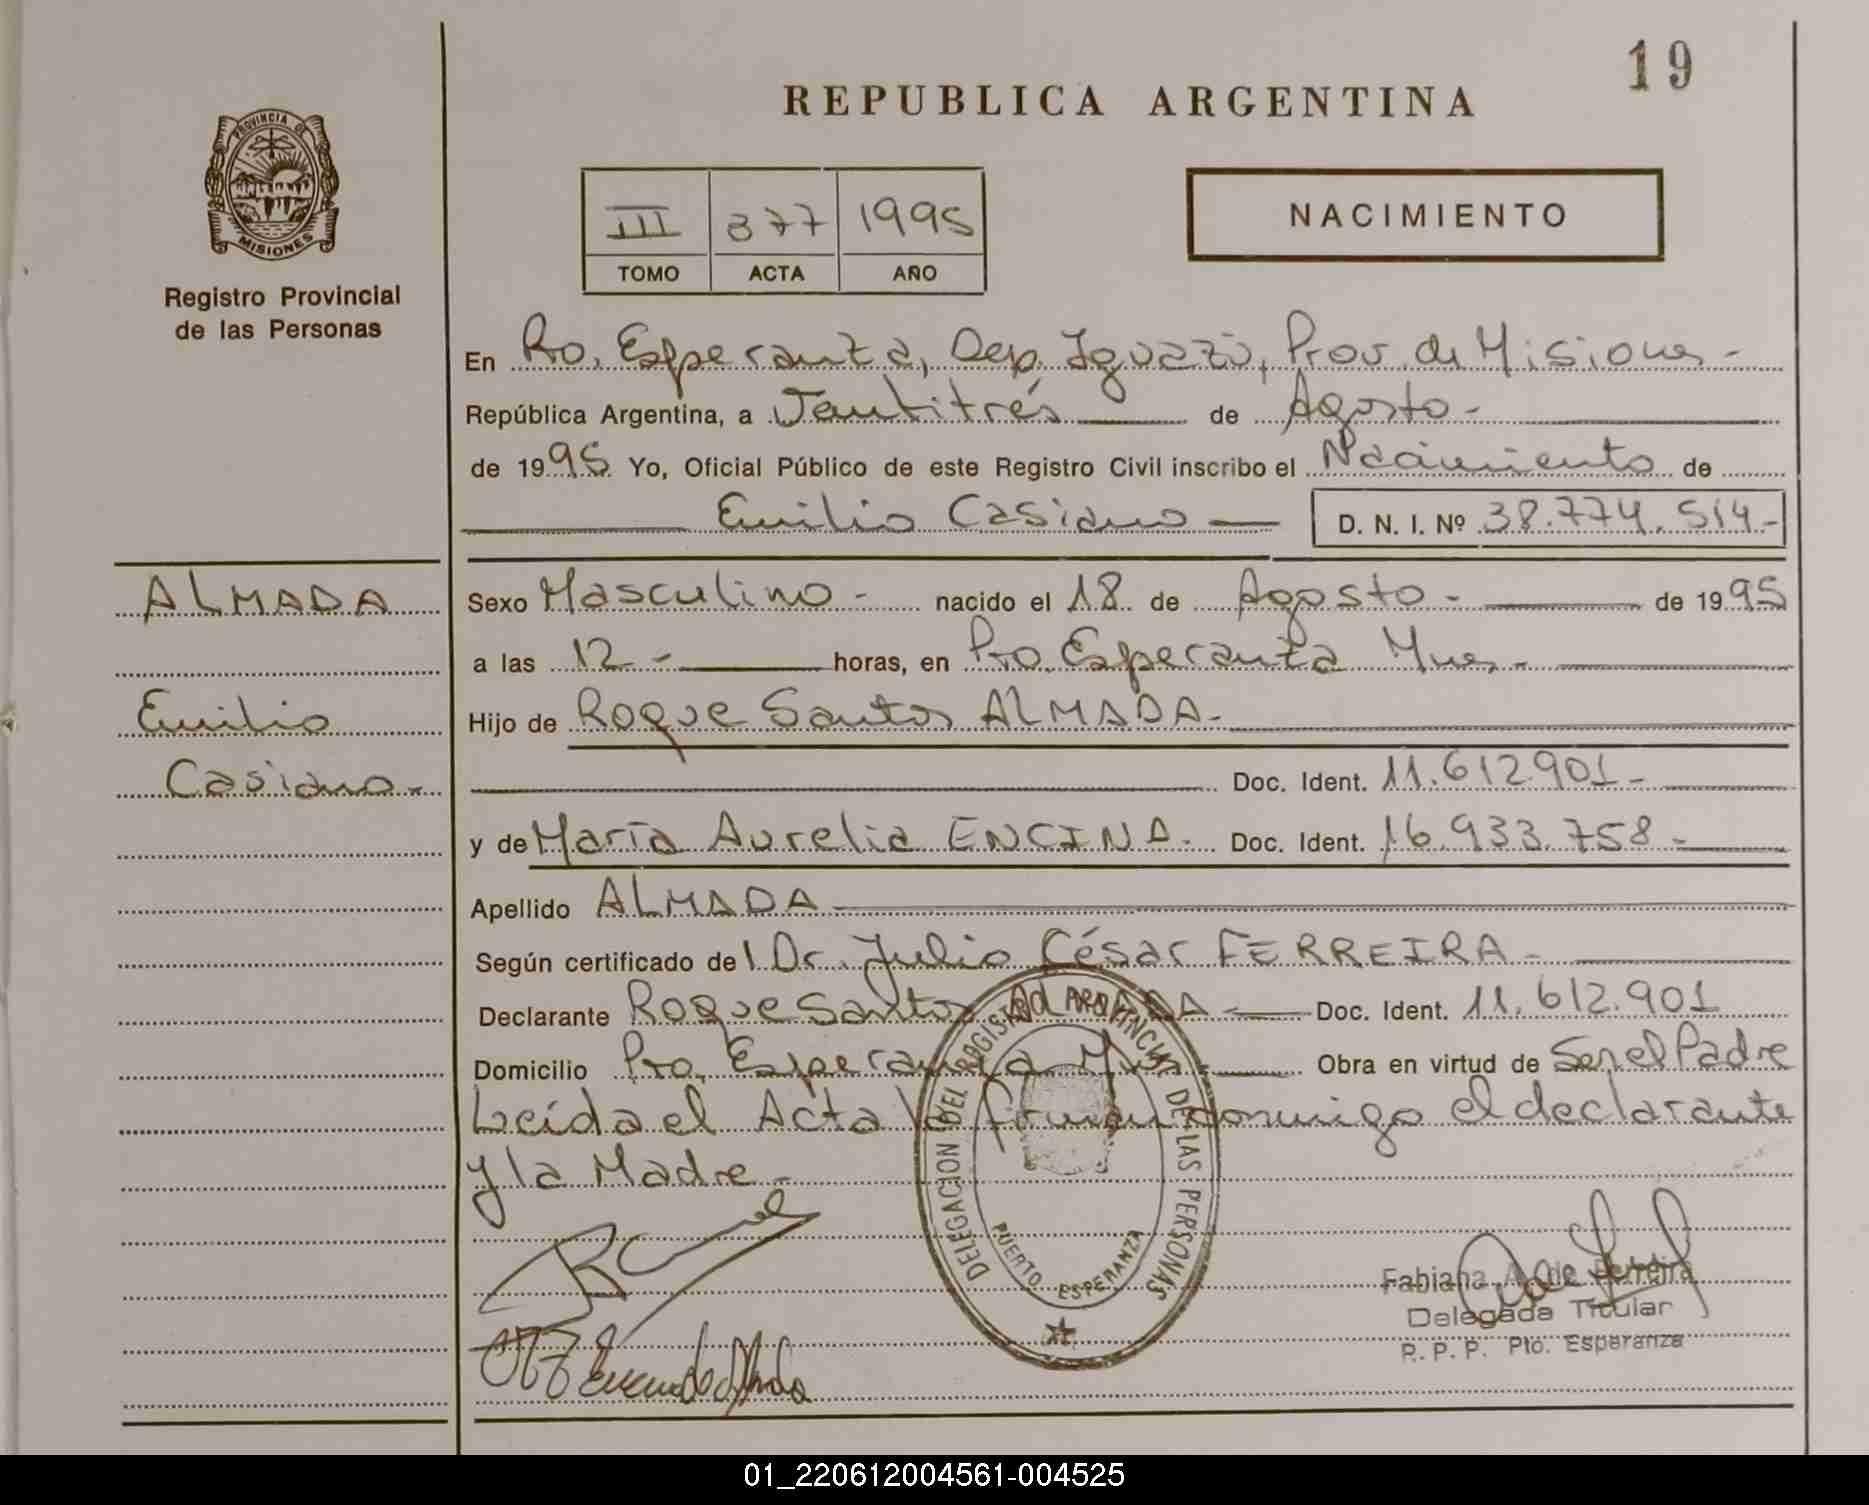 19
REPUBLICA ARGENTINA
PROVINCIA DE
MISIONES
Registro Provincial
de las Personas
III 377 1995
TOMO ACTA AÑO
NACIMIENTO
En Pto. Esperanza, Dep. Iguazú, Prov. de Misiones -
República Argentina, a Veintitrés de Agosto -
de 1995 Yo, Oficial Público de este Registro Civil inscribo el Nacimiento de
Emilio Casiano D. N. I. Nº 38.774.514-
ALMADA
Emilio
Casiano -
Sexo Masculino - nacido el 18 de Agosto - de 1995
a las 12 - horas, en Pto. Esperanza Mnes -
Hijo de Roque Santos ALMADA -
Doc. Ident. 11.612.901 -
y de María Aurelia ENCINA - Doc. Ident. 16.933.758 -
Apellido ALMADA
Según certificado del Dr. Julio César FERREIRA -
Declarante Roque Santos ALMADA Doc. Ident. 11.612.901
Domicilio Pto. Esperanza Mnes Obra en virtud de Ser el Padre
Leída el Acta la firman conmigo el declarante
y la Madre -
DELEGACION DEL REGISTRO PROVINCIAL DE LAS PERSONAS
PUERTO ESPERANZA
Fabiana A. de Ferreira
Delegada Titular
R. P. P. Pto. Esperanza
01_220612004561-004525